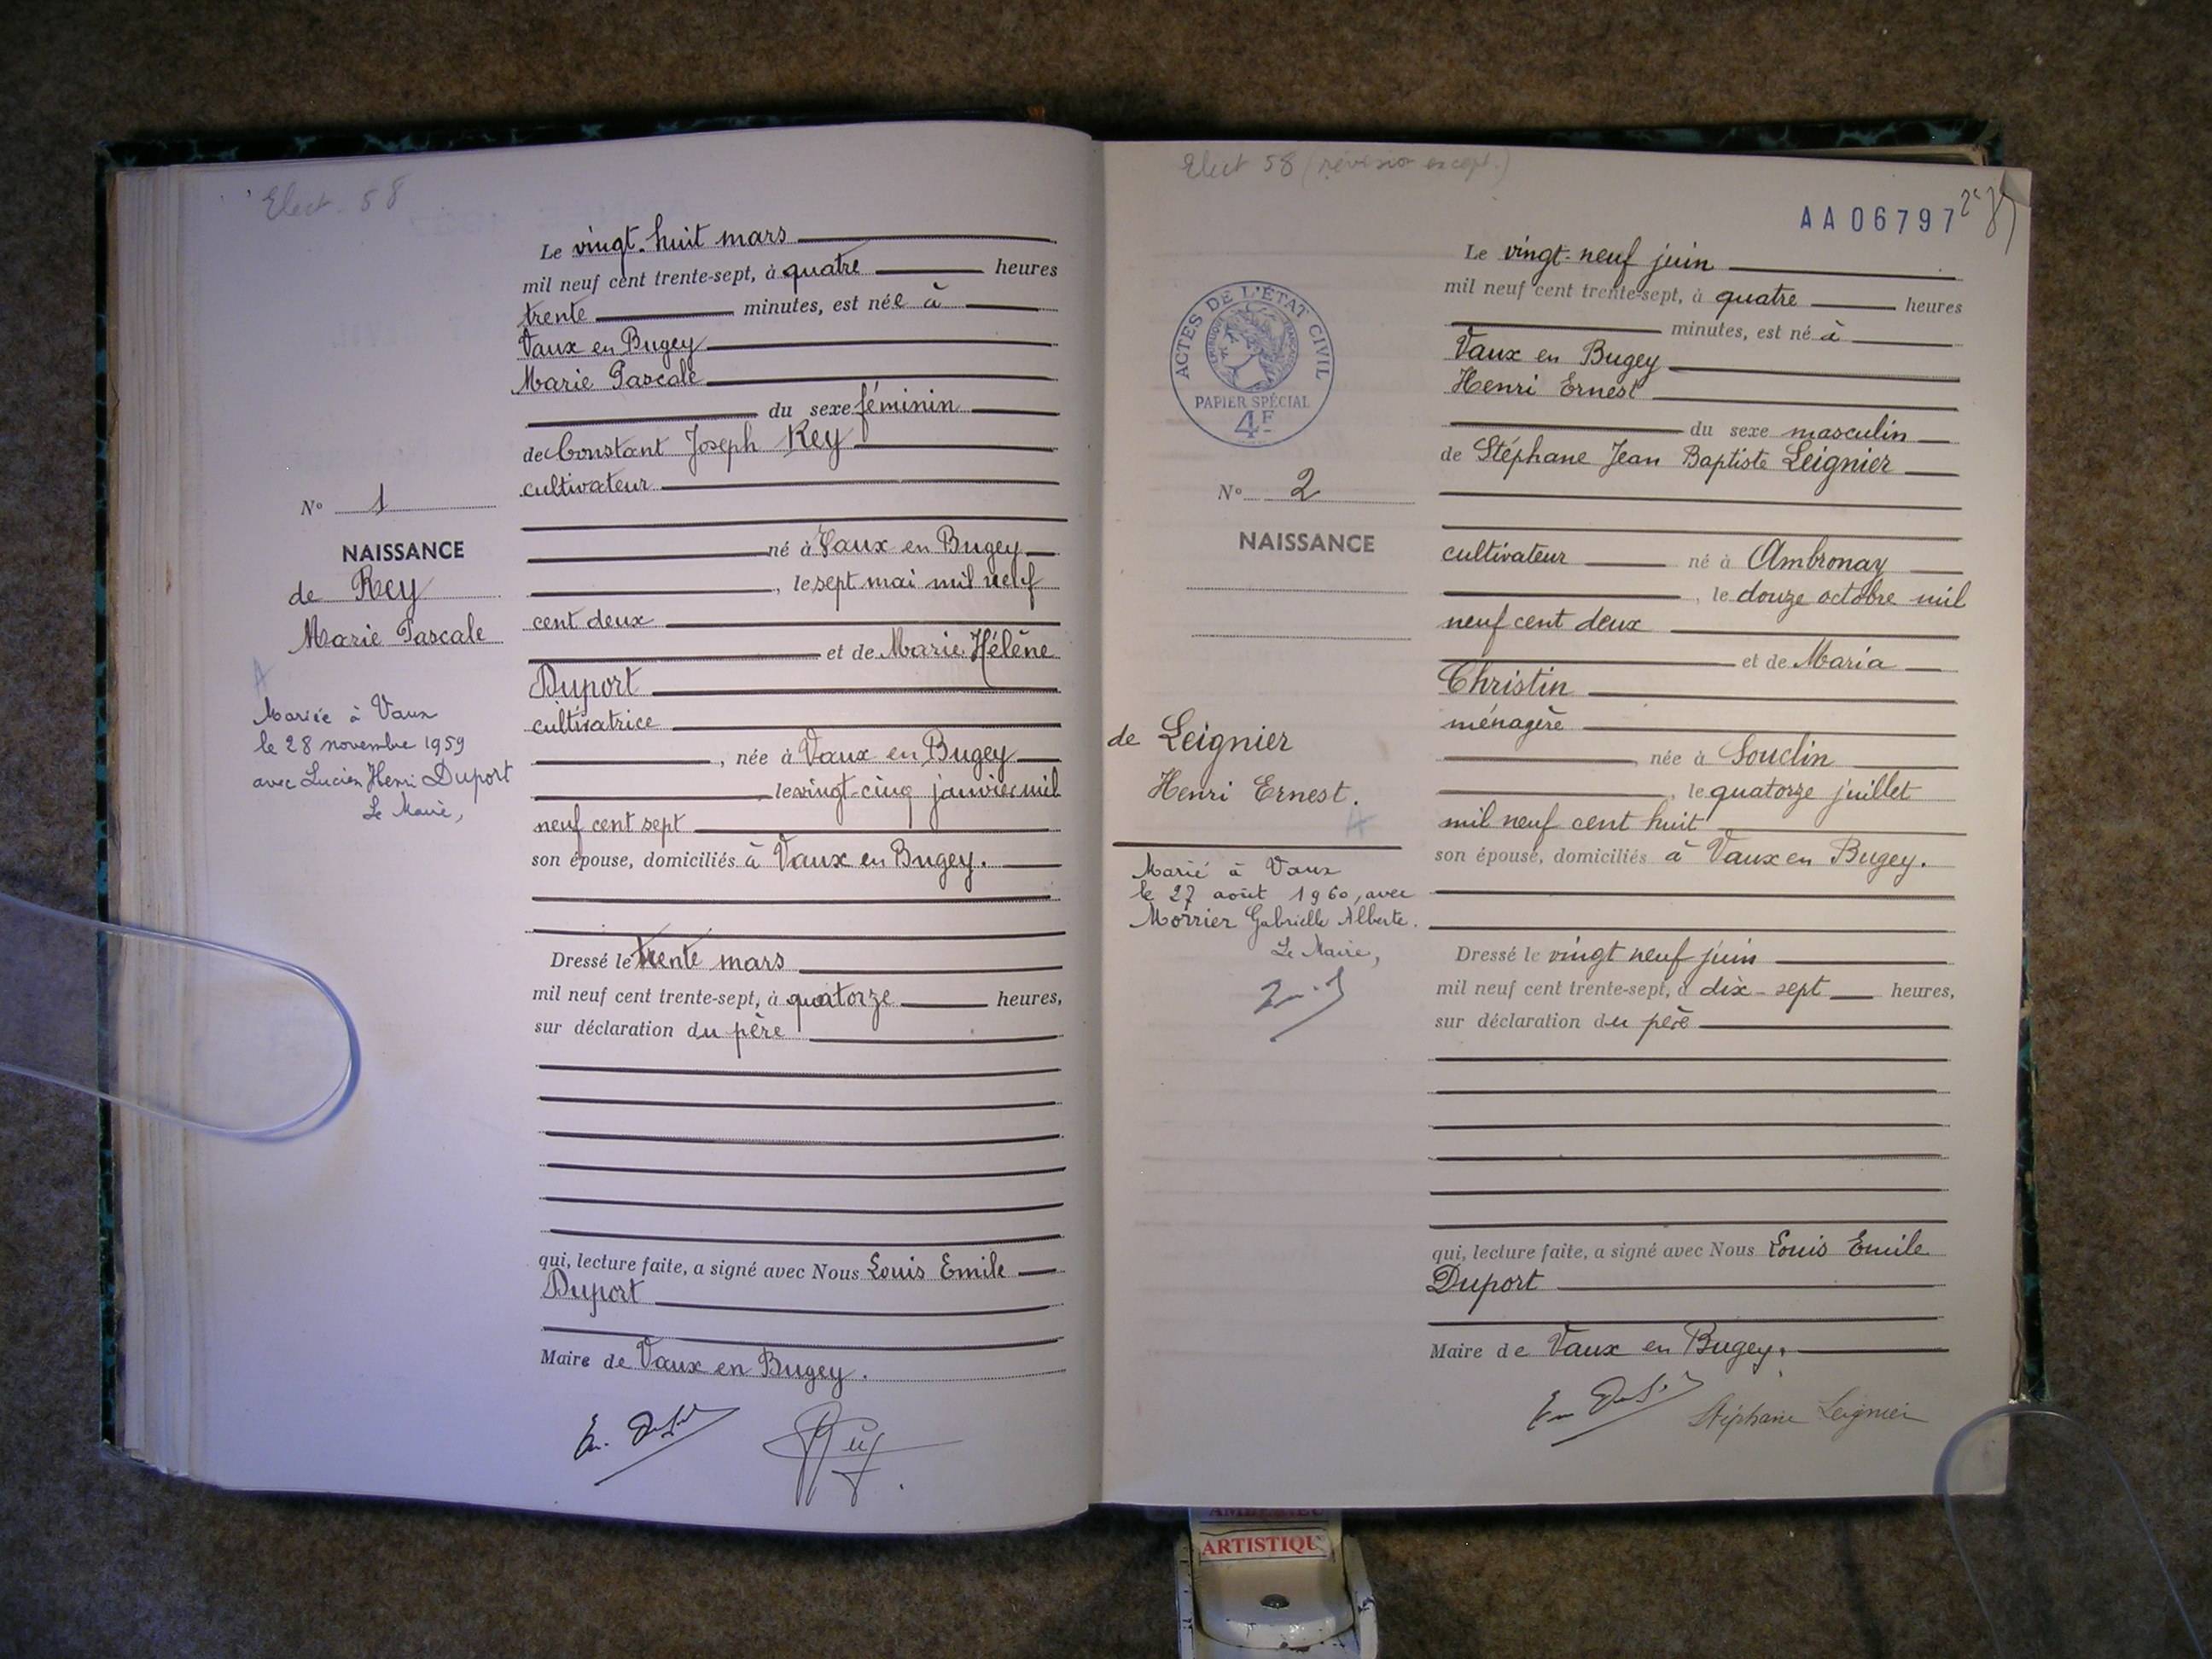 Elect. 58
Le vingt-huit mars
mil neuf cent trente-sept, à quatre heures
trente minutes, est née à
Vaux en Bugey
Marie Pascale
du sexe féminin
de Constant Joseph Rey
cultivateur
né à Vaux en Bugey
, le sept mai mil neuf
cent deux
et de Marie Hélène
Duport
cultivatrice
, née à Vaux en Bugey
, le vingt-cinq janvier mil
neuf cent sept
son épouse, domiciliés à Vaux en Bugey.
Dressé le trente mars
mil neuf cent trente-sept, à quatorze heures,
sur déclaration du père
qui, lecture faite, a signé avec Nous Louis Emile
Duport
Maire de Vaux en Bugey.
N° 1
NAISSANCE
de Rey
Marie Pascale
A
Mariée à Vaux
le 28 novembre 1959
avec Lucien Henri Duport
Le Maire,
Elect 58 (révision except.)
AA06797
ACTES DE L'ÉTAT CIVIL
RÉPUBLIQUE FRANÇAISE
PAPIER SPÉCIAL
4F
N° 2
NAISSANCE
de Leignier
Henri Ernest.
A
Marié à Vaux
le 27 août 1960, avec
Morrier Gabrielle Alberte.
Le Maire,
Le vingt-neuf juin
mil neuf cent trente-sept, à quatre heures
minutes, est né à
Vaux en Bugey
Henri Ernest
du sexe masculin
de Stéphane Jean Baptiste Leignier
cultivateur né à Ambronay
, le douze octobre mil
neuf cent deux
et de Maria
Christin
ménagère
, née à Souclin
, le quatorze juillet
mil neuf cent huit
son épouse, domiciliés à Vaux en Bugey.
Dressé le vingt neuf juin
mil neuf cent trente-sept, à dix-sept heures,
sur déclaration du père
qui, lecture faite, a signé avec Nous Louis Emile
Duport
Maire de Vaux en Bugey.
Stéphane Leignier
ARTISTIQU